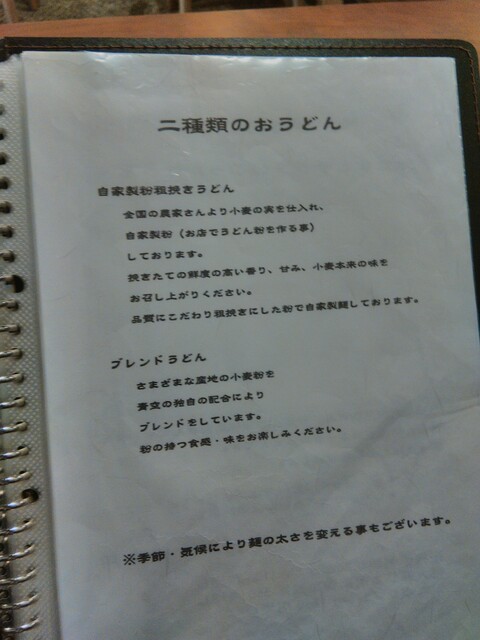 二種類のおうどん
自家製粉粗挽きうどん
全国の農家さんより小麦の実を仕入れ、
自家製粉（お店でうどん粉を作る事）
しております。
挽きたての鮮度の高い香り、甘み、小麦本来の味を
お召し上がりください。
品質にこだわり粗挽きにした粉で自家製麺しております。
ブレンドうどん
さまざまな産地の小麦粉を
青空の独自の配合により
ブレンドをしています。
粉の持つ食感・味をお楽しみください。
※季節・気候により麺の太さを変える事もございます。